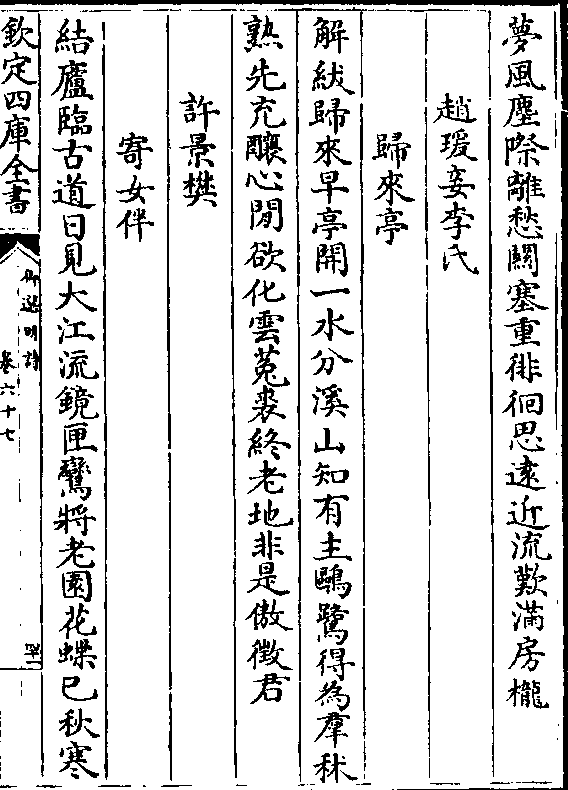 夢風塵際離愁關塞重徘徊思遠近流歎滿房櫳
趙瑗妾李氏
歸來亭
解紱歸來早亭開一水分溪山知有主鷗鷺得為羣秫
熟先充釀心閒欲化雲菟裘終老地非是傲徵君
許景樊
寄女伴
結廬臨古道日見大江流鏡匣鸞將老園花蝶已秋寒
欽定四庫全書
御選明詩
卷六十七